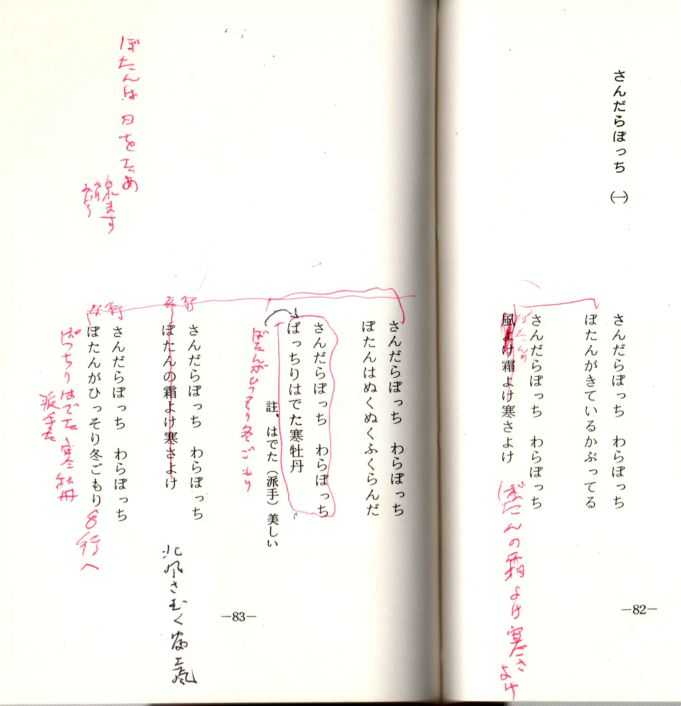 さんだらぼっち ㈠
さんだらぼっち わらぼっち
ぼたんがきているかぶってる
さんだらぼっち わらぼっち
ぼたんの
風よけ霜よけ寒さよけ
ぼたんの霜よけ寒さよけ
—82—
さんだらぼっち わらぼっち
ぼたんはぬくぬくふくらんだ
さんだらぼっち わらぼっち
ぱっちりはでた寒牡丹
註、はでた（派手）美しい
ぼたんがひっそり冬ごもり
さんだらぼっち わらぼっち
ぼたんの霜よけ寒さよけ
北風さむく
さんだらぼっち わらぼっち
ぼたんがひっそり冬ごもり
8行へ
ぱっちりはでた寒牡丹
派手な
ぼたんは
—83—